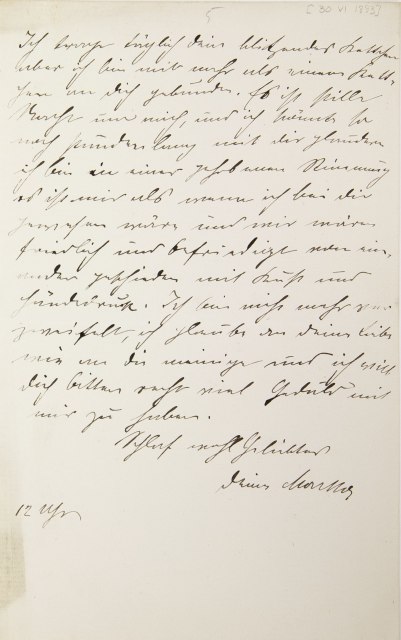 5
[30 VI 1883]
Ich trage täglich dein blitzendes Kettchen
aber ich bin mit mehr als einem Kett-
chen an dich gebunden. Es ist stille
Nacht um mich, und ich könnte so
noch stundenlang mit dir plaudern
ich bin in einer gehobenen Stimmung
es ist mir als wenn ich bei dir
gewesen wäre und wir wären
friedlich und befriedigt von ein-
ander geschieden mit Kuß und
Händedruck. Ich bin nicht mehr ver-
zweifelt, ich glaube an deine Liebe
wie an die meinige und ich will
dich bitten recht viel Geduld mit
mir zu haben.
Schlaf wohl Geliebter
deine Martha
12 Uhr